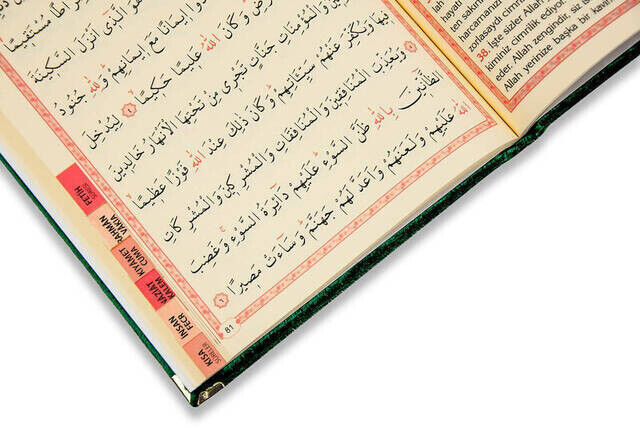 صِرَاطًا مُسْتَقِيمًا
هُوَ الَّذِى اَنْزَلَ السَّكِينَةَ
اِيمَانًا مَعَ اِيمَانِهِمْ وَلِلّٰهِ جُنُودُ
وَكَانَ اللّٰهُ عَلِيمًا حَكِيمًا ٤ لِيُدْخِلَ
وَالْمُؤْمِنَاتِ جَنَّاتٍ تَجْرِى مِنْ تَحْتِهَا الْاَنْهَارُ خَالِدِينَ
فِيهَا وَيُكَفِّرَ عَنْهُمْ سَيِّئَاتِهِمْ وَكَانَ ذٰلِكَ عِنْدَ اللّٰهِ فَوْزًا عَظِيمًا
٥ وَيُعَذِّبَ الْمُنَافِقِينَ وَالْمُنَافِقَاتِ وَالْمُشْرِكِينَ وَالْمُشْرِكَاتِ
الظَّانِّينَ بِاللّٰهِ ظَنَّ السَّوْءِ عَلَيْهِمْ دَائِرَةُ السَّوْءِ وَغَضِبَ
اللّٰهُ عَلَيْهِمْ وَلَعَنَهُمْ وَاَعَدَّ لَهُمْ جَهَنَّمَ وَسَاءَتْ مَصِيرًا ٦
81
FETİH
SÛRESİ
RAHMAN
VAKIA
KIYAMET
CUMA
NAZİAT
KALEM
İNSAN
FECR
KISA
SÛRELER
hayatı
harcamanızı
ten sakın
zorlasaydı cimri
38. İşte sizler Allah
kiminiz cimrilik ediyor.
eder. Allah zengindir, siz is
Allah yerinize başka bir kavim